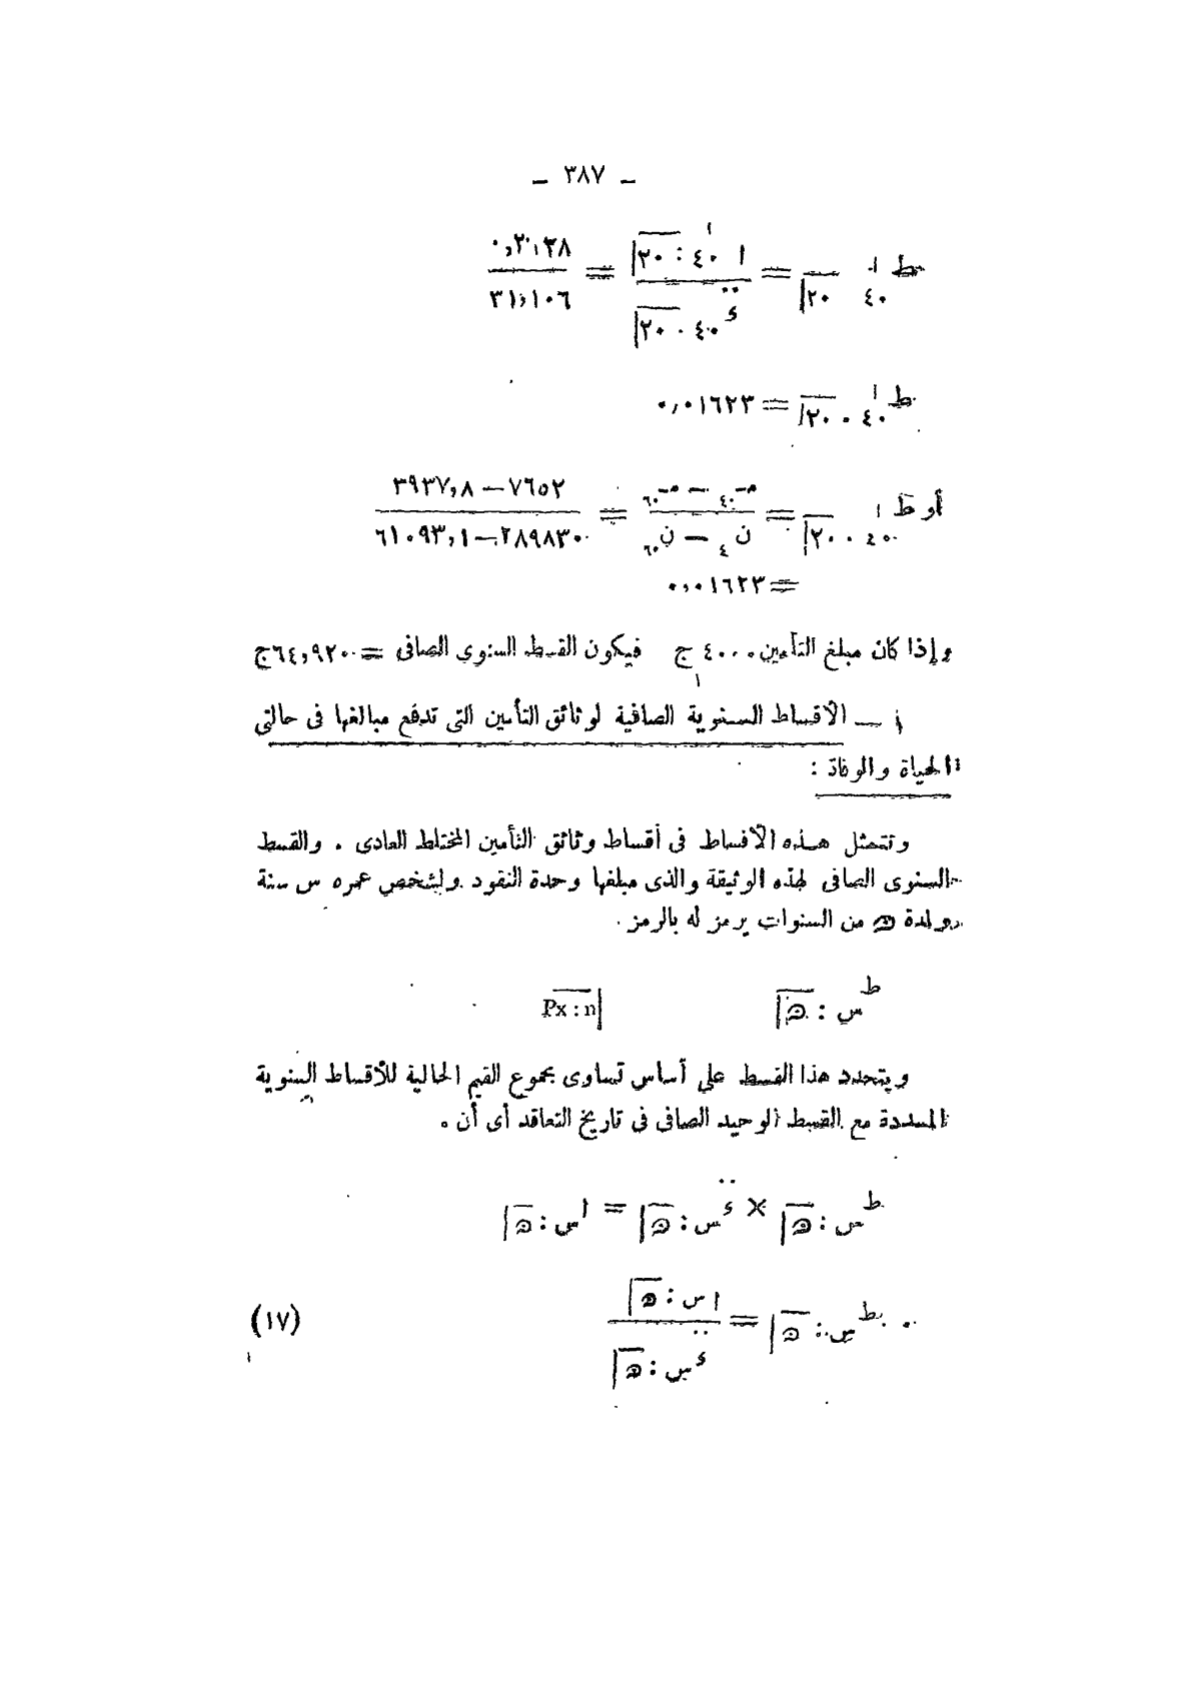 – ٣٨٧ –
ط ١ ٤٠ ٢٠| = ١ ٤٠ : ٢٠| / ءَ ٤٠ . ٢٠| = ٠,٢٠١٣٨ / ٣١,١٠٦
ط ١ ٤٠ . ٢٠| = ٠,٠١٦٢٣
أو ط ١ ٤٠ . ٢٠| = م٤٠ – م٦٠ / ن٤ – ن٦٠ = ٧٦٥٢ – ٣٩٣٧,٨ / ٢٨٩٨٣٠ – ٦١٠٩٣,١
= ٠,٠١٦٢٣
وإذا كان مبلغ التأمين ٤٠٠٠ ج فيكون القسط السنوى الصافى = ٦٤,٩٢٠ ج
– الأقساط السنوية الصافية لوثائق التأمين التى تدفع مبالغها فى حالتى
الحياة والوفاة :
وتتمثل هذه الأقساط فى أقساط وثائق التأمين المختلط العادى . والقسط
السنوى الصافى لهذه الوثيقة والذى مبلغها وحدة النقود ولشخص عمره س سنة
ولمدة ه من السنوات يرمز له بالرمز .
ط س : ه| Px : n|
ويتحدد هذا القسط على أساس تساوى مجموع القيم الحالية للأقساط السنوية
المسددة مع القسط الوحيد الصافى فى تاريخ التعاقد أى أن .
ط س : ه| × ء س : ه| = ا س : ه|
. ط س : ه| = ا س : ه| / ء س : ه| (١٧)